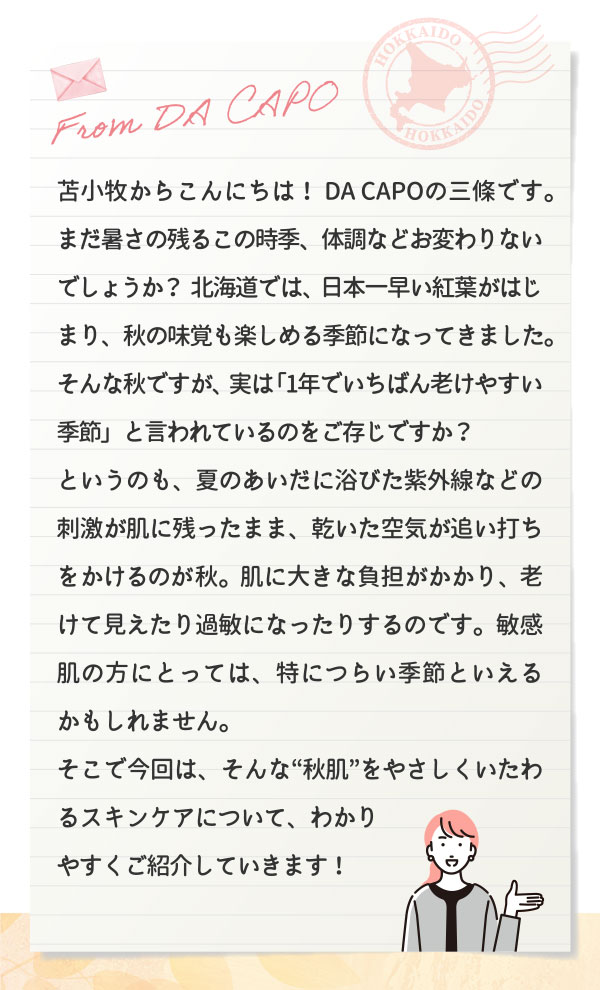 HOKKAIDO
HOKKAIDO
From DA CAPO
苫小牧からこんにちは！ DA CAPOの三條です。
まだ暑さの残るこの時季、体調などお変わりない
でしょうか？ 北海道では、日本一早い紅葉がはじ
まり、秋の味覚も楽しめる季節になってきました。
そんな秋ですが、実は「1年でいちばん老けやすい
季節」と言われているのをご存じですか？
というのも、夏のあいだに浴びた紫外線などの
刺激が肌に残ったまま、乾いた空気が追い打ち
をかけるのが秋。肌に大きな負担がかかり、老
けて見えたり過敏になったりするのです。敏感
肌の方にとっては、特につらい季節といえる
かもしれません。
そこで今回は、そんな“秋肌”をやさしくいたわ
るスキンケアについて、わかり
やすくご紹介していきます！